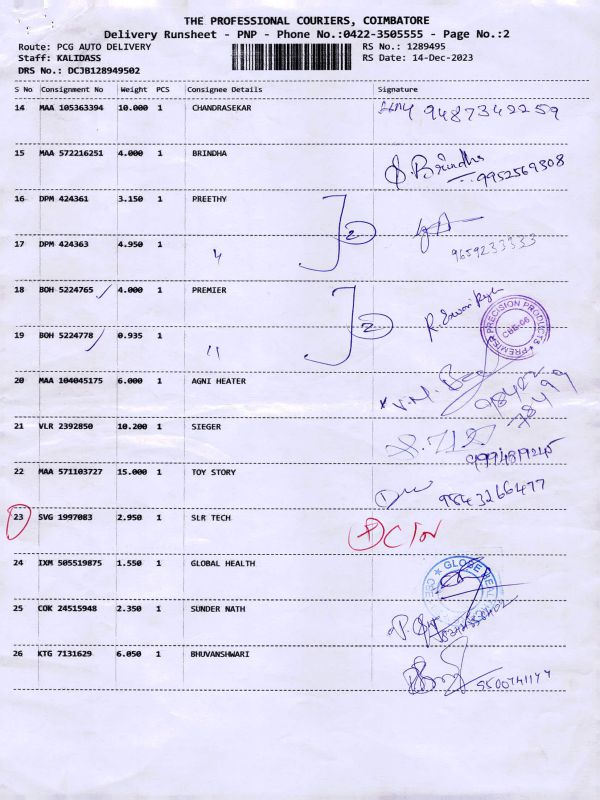 THE PROFESSIONAL COURIERS, COIMBATORE
Delivery Runsheet - PNP - Phone No.:0422-3505555 - Page No.:2
Route: PCG AUTO DELIVERY RS No.: 1289495
Staff: KALIDASS RS Date: 14-Dec-2023
DRS No.: DCJB128949502
S No Consignment No Weight PCS Consignee Details Signature
14 MAA 105363394 10.000 1 CHANDRASEKAR 9487342259
15 MAA 572216251 4.000 1 BRINDHA Brindha
9952569308
16 DPM 424361 3.150 1 PREETHY 2
17 DPM 424363 4.950 1 〃 9659233333
18 BOH 5224765 4.000 1 PREMIER 2
PREMIER PRECISION PRODUCTS CBE-06
19 BOH 5224778 0.935 1 〃
20 MAA 104045175 6.000 1 AGNI HEATER
21 VLR 2392850 10.200 1 SIEGER
22 MAA 571103727 15.000 1 TOY STORY 9843266477
23 SVG 1997083 2.950 1 SLR TECH
24 IXM 505519875 1.550 1 GLOBAL HEALTH
25 COK 24515948 2.350 1 SUNDER NATH
26 KTG 7131629 6.050 1 BHUVANSHWARI